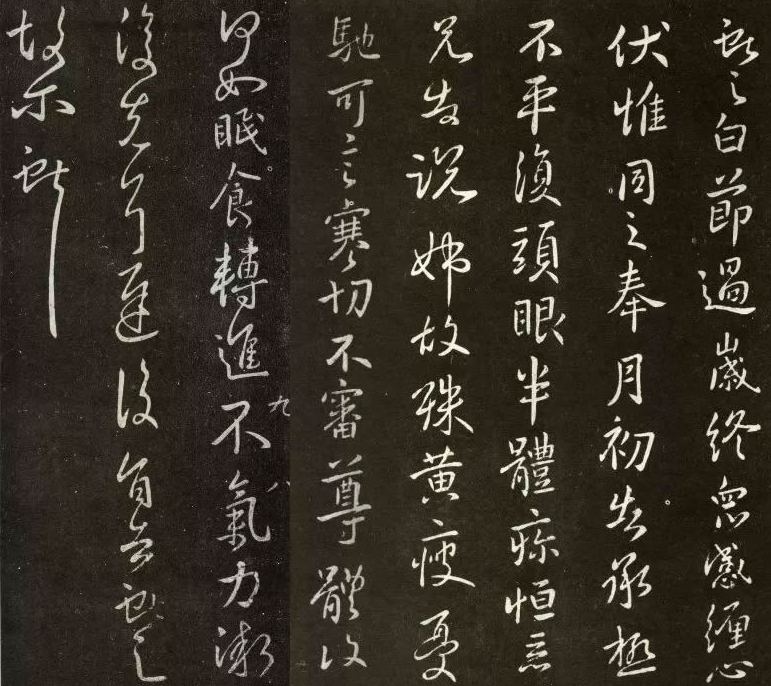 獻之白節過歲終眾感纏心
伏惟同之奉月初告承極
不平復頭眼半體疼恒惡
兄告說姊故殊黃瘦憂
馳可言寒切不審尊體復
何如眠食轉進不氣力漸
九
八
復先遲復獻之
故尓獻